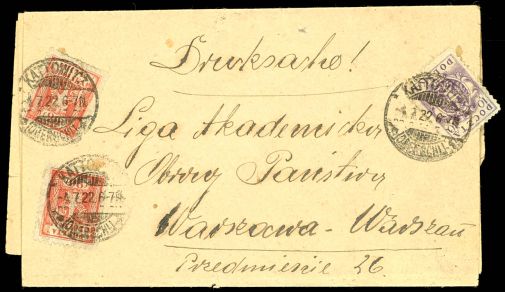 Drucksache!
KATTOWITZ
-4.7.22.6-7N.
(OBERSCHL)
KATTOWITZ
-4.7.22.6-7N.
(OBERSCHL)
KATTOWITZ
-4.7.22.6-7N.
(OBERSCHL)
Liga Akademicka
Obrony Państwa
Warszawa - Warschau
Przedmieście 26.